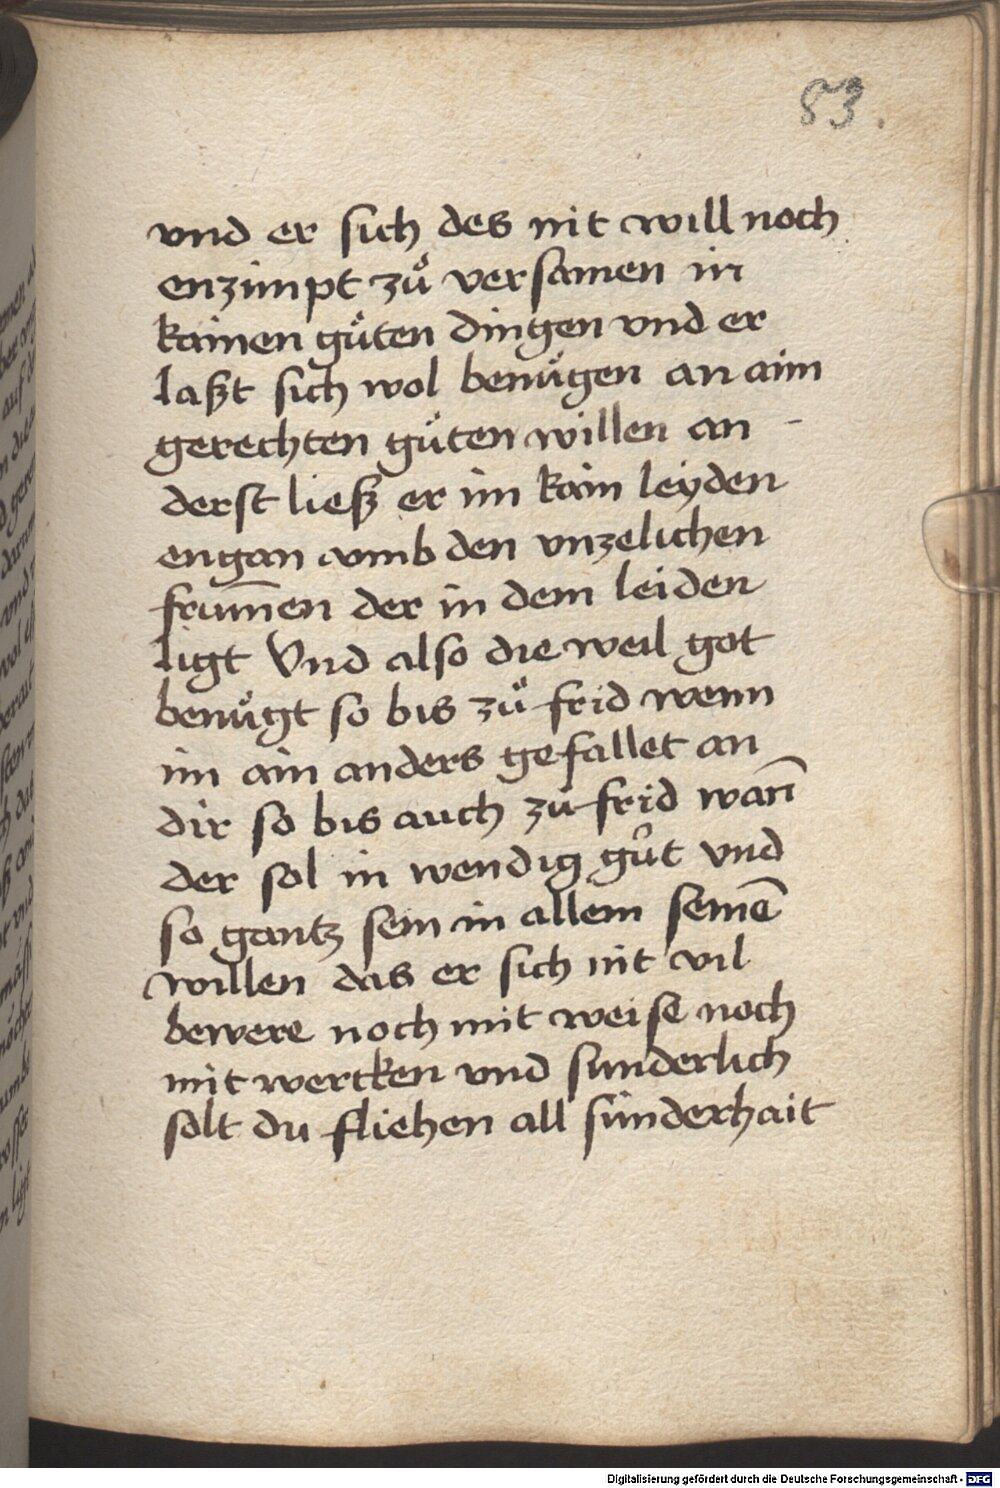 83.
vnd er sich des nit will noch
enzimpt zuͦ versamen in
kainen guͤten dingen vnd er
laßt sich wol benuͤgen an aim
gerechten guͤten willen an -
derst ließ er im kain leyden
engan vmb den vnzelichen
frum̅en der in dem leiden
ligt Vnd also die weil got
benuͤgt so bis zuͦ frid wenn
im ain anders gefallet an
dir so bis auch zu frid wan̅
der sol in wendig guͦt vnd
so gantz sein in allem seine̅
willen das er sich nit vil
bewere noch mit weise noch
mit wercken vnd sunderlich
solt du fliehen all sünderhait
Digitalisierung gefördert durch die Deutsche Forschungsgemeinschaft - DFG